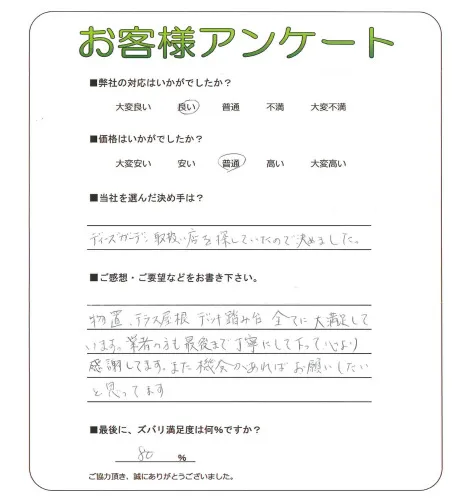 お客様アンケート
■弊社の対応はいかがでしたか？
大変良い 良い 普通 不満 大変不満
■価格はいかがでしたか？
大変安い 安い 普通 高い 大変高い
■当社を選んだ決め手は？
ディーズガーデン取扱い店を探していたので決めました。
■ご感想・ご要望などをお書き下さい。
物置、テラス屋根 デッキ踏み台 全てに大満足して
います。業者の方も最後まで丁寧にして下さって心より
感謝してます。また機会があればお願いしたい
と思ってます
■最後に、ズバリ満足度は何％ですか？
80 ％
ご協力頂き、誠にありがとうございました。